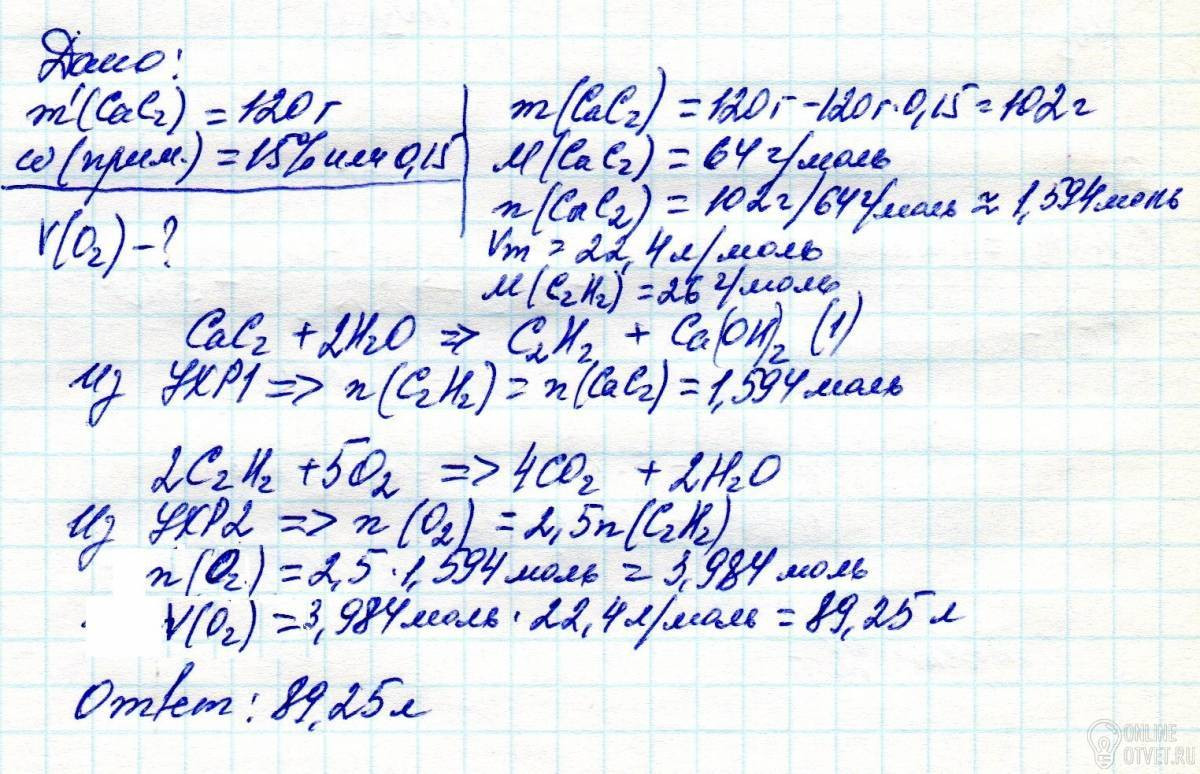 Дано:
m'(CaC₂) = 120 г
ω(прим.) = 15% или 0,15
V(O₂) - ?
m(CaC₂) = 120г - 120г·0,15 = 102г
M(CaC₂) = 64 г/моль
n(CaC₂) = 102г/64г/моль ≈ 1,594 моль
Vm = 22,4 л/моль
M(C₂H₂) = 26 г/моль
CaC₂ + 2H₂O => C₂H₂ + Ca(OH)₂ (1)
Из УХР1 => n(C₂H₂) = n(CaC₂) = 1,594 моль
2C₂H₂ + 5O₂ => 4CO₂ + 2H₂O
Из УХР2 => n(O₂) = 2,5n(C₂H₂)
n(O₂) = 2,5·1,594 моль = 3,984 моль
V(O₂) = 3,984 моль · 22,4 л/моль = 89,25 л
Ответ: 89,25 л
ONLINE
OTVET.RU